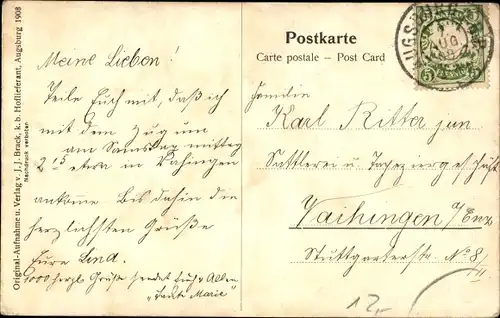 Original-Aufnahme u. Verlag v. J. J. Brack, k. b. Hoflieferant, Augsburg 1908
Nachdruck verboten.
Meine Lieben!
Teile Euch mit, daß ich
mit dem Zug um
am Samstag mittag
2 15 etwa in Vahingen
ankomme Bis dahin die
herzlichsten Grüße
Eure Lina.
1000 herzl Grüße sendet Euch Allen
"Tante Marie"
Postkarte
Carte postale – Post Card
AUGSBURG
AUG
5 PFENNIG 5
Familie
Karl Ritter jun
Sattlerei u Tapeziergeschäft
Vaihingen /Enz
Stuttgarterstr No 8/
II
12,-